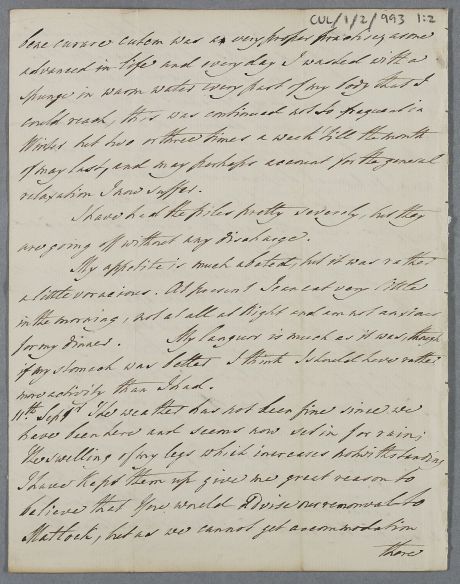 CUL/1/2/993 1:2
bene curare cutem was a very proper practise, as one
advanced in life and every day I washed with a
spunge in warm water every part of my body that I
could reach, this was continued not so frequent in
Winter but two or three times a week till the month
of may last, and may perhaps account for the general
relaxation I now suffer.
I have had the piles pretty severely, but they
are going off without any discharge.
My appetite is much abated, but it was rather
a little voracious. At present I can eat very little
in the morning, not at all at Night and am not anxious
for my Dinner. My languor is much as it was, though
if my stomach was better I think I should have rather
more activity than I had.
11th. Septr. The weather has not been fine since we
have been here and seems now set in for rain;
the swelling of my legs which increases notwithstanding
I have kept them up give me great reason to
believe that you would advise our removal to
Matlock, but as we cannot get accommodation
there